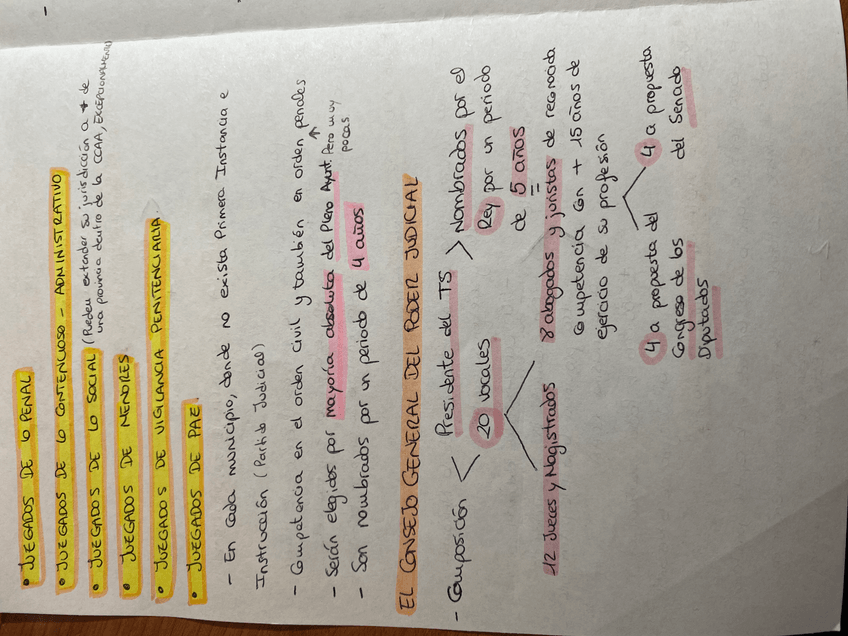 • JUZGADOS DE LO PENAL
• JUZGADOS DE LO CONTENCIOSO - ADMINISTRATIVO
• JUZGADOS DE LO SOCIAL (Pueden extender su jurisdicción a + de
una provincia dentro de la CCAA, EXCEPCIONALMENTE)
• JUZGADOS DE MENORES
• JUZGADOS DE VIGILANCIA PENITENCIARIA
• JUZGADOS DE PAZ
- En cada municipio, donde no exista Primera Instancia e
Instrucción (Partido Judicial)
- Competencia en el orden civil y también en orden penales
↑ Pero muy
pocas
- Serán elegidos por mayoría absoluta del Pleno Ayunt.
- Son nombrados por un periodo de 4 años
EL CONSEJO GENERAL DEL PODER JUDICIAL
- Composición < Presidente del TS
20 vocales
> Nombrados por el
Rey por un periodo
de 5 años
12 Jueces y Magistrados
8 abogados y juristas de reconocida
competencia con + 15 años de
ejercicio de su profesión
4 a propuesta del
Congreso de los
Diputados
4 a propuesta
del Senado